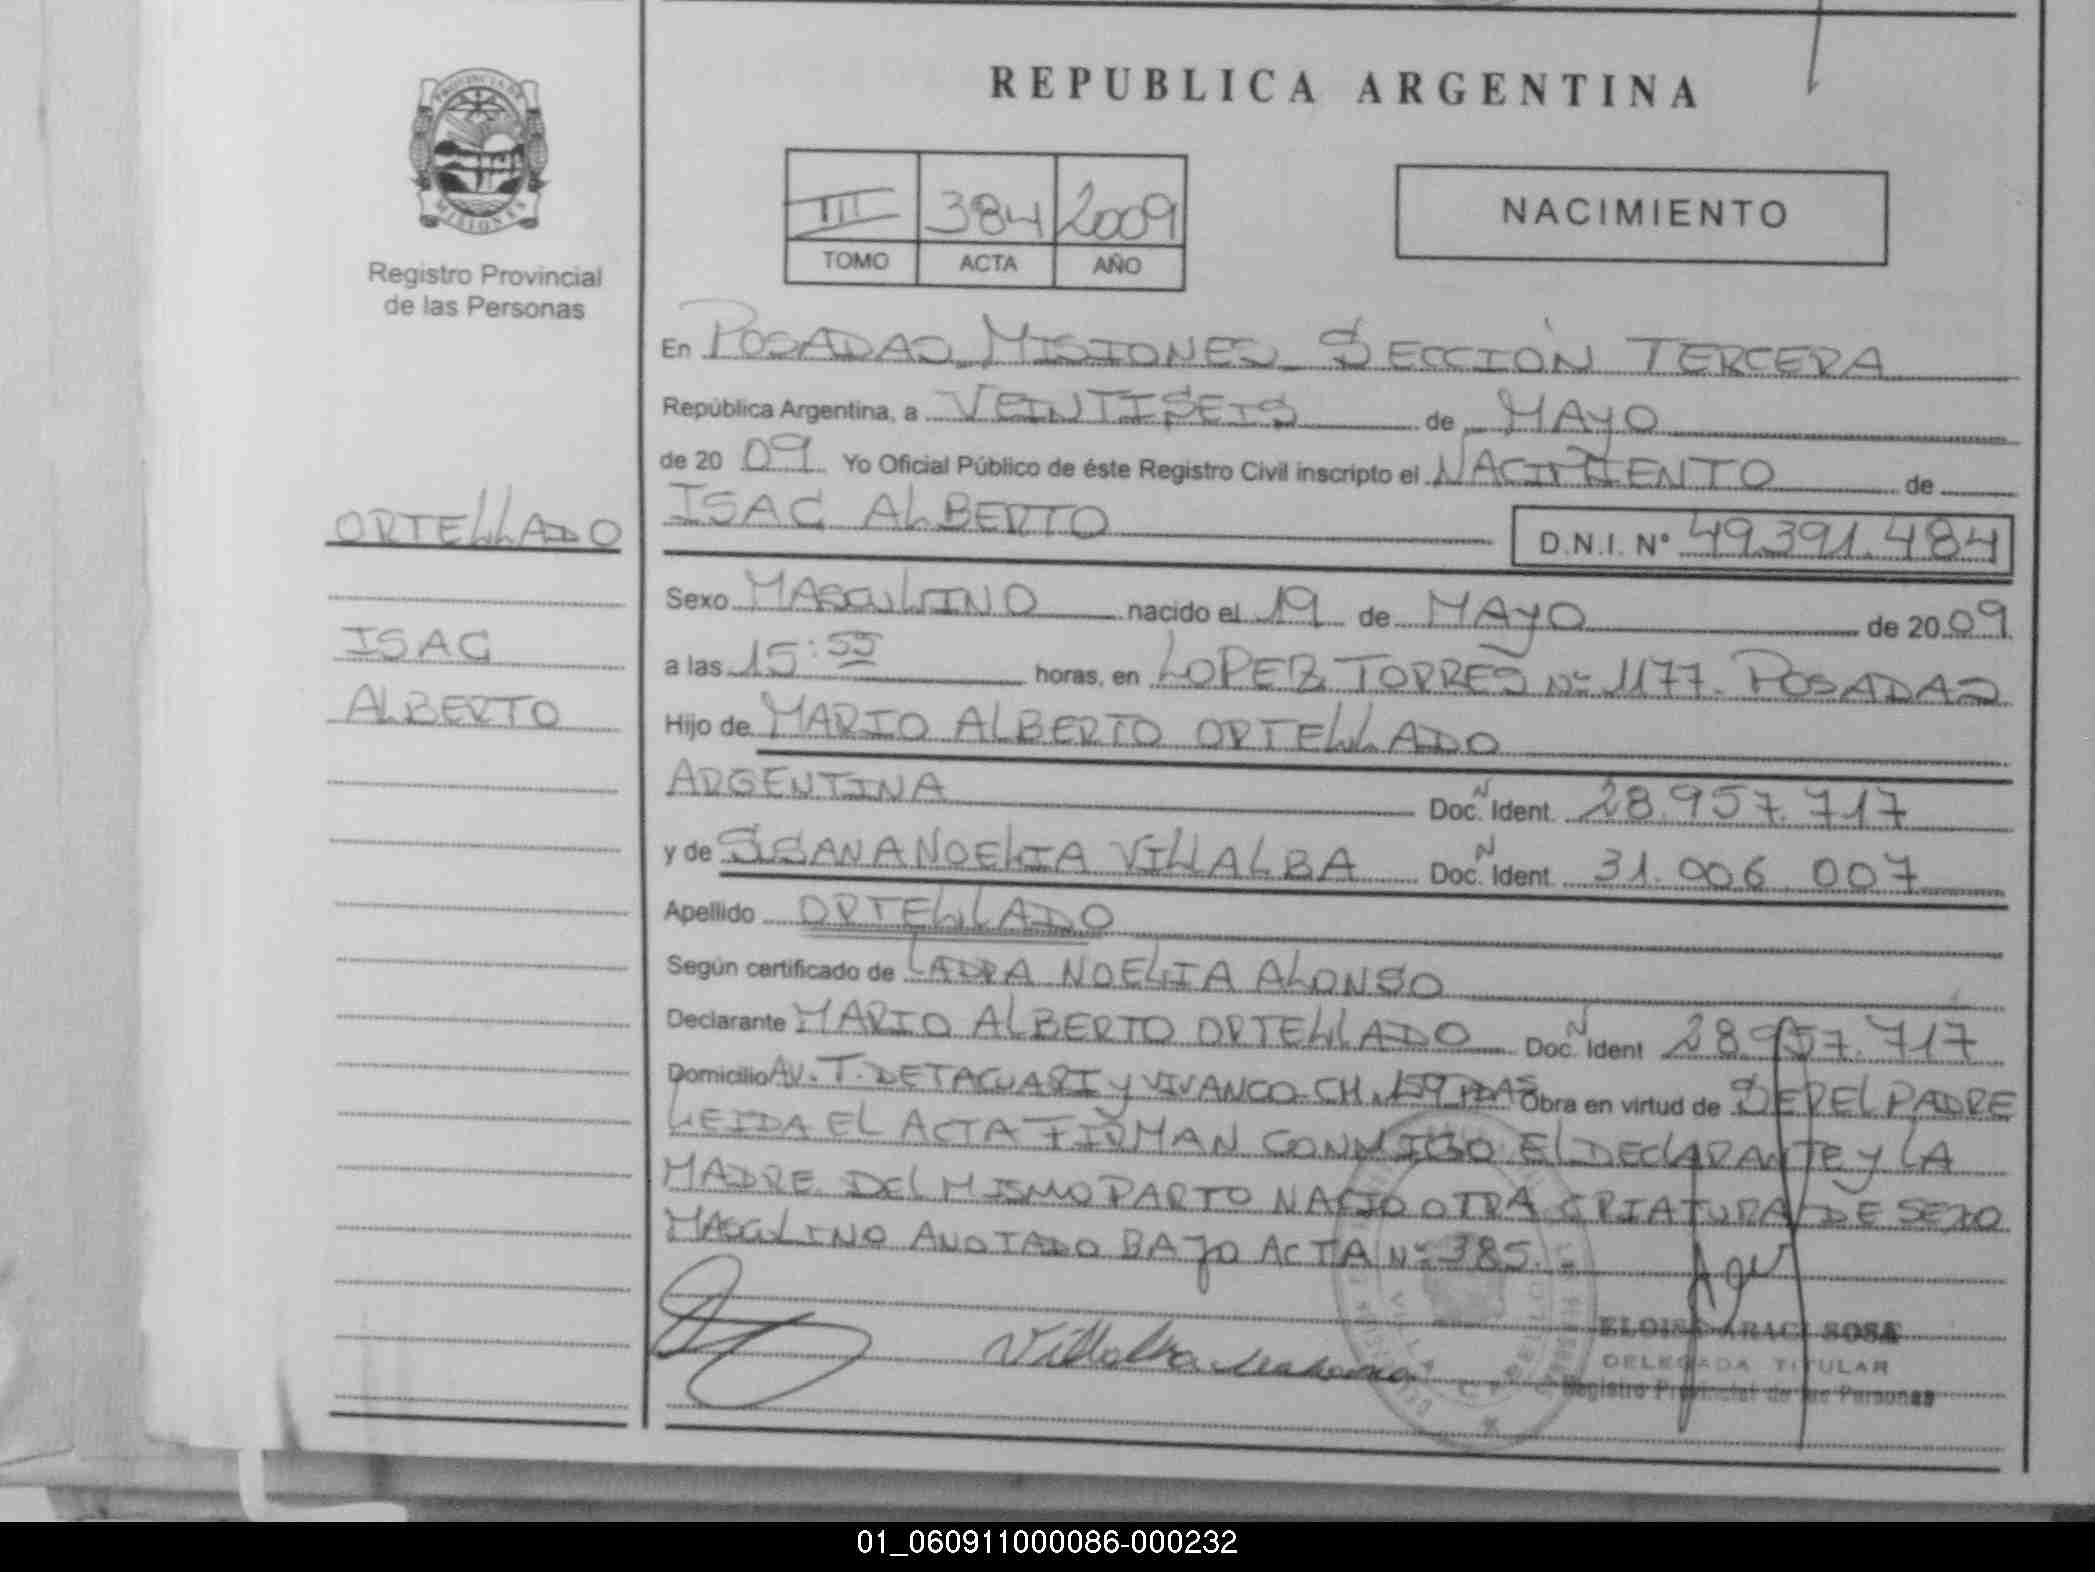 REPUBLICA ARGENTINA
PROVINCIA DE
MISIONES
Registro Provincial
de las Personas
III 384 2009
TOMO ACTA AÑO
NACIMIENTO
En POSADAS MISIONES SECCIÓN TERCERA
República Argentina, a VEINTISEIS de MAYO
de 20 09 Yo Oficial Público de éste Registro Civil inscripto el NACIMIENTO de
ISAC ALBERTO D.N.I. Nº 49.391.484
ORTELLADO
ISAC
ALBERTO
Sexo MASCULINO nacido el 19 de MAYO de 20 09
a las 15:55 horas, en LOPEZ TORRES Nº 1177. POSADAS
Hijo de MARIO ALBERTO ORTELLADO
ARGENTINA Doc. N Ident. 28.957.717
y de SUSANA NOELIA VILLALBA Doc. N Ident. 31.006.007
Apellido ORTELLADO
Según certificado de LAURA NOELIA ALONSO
Declarante MARIO ALBERTO ORTELLADO Doc. N Ident 28.957.717
Domicilio AV. T. DE TACUARI y VIVANCO CH. 159 PDAS Obra en virtud de SER EL PADRE
LEIDA EL ACTA FIRMAN CONMIGO EL DECLARANTE y LA
MADRE DEL MISMO PARTO NACIO OTRA CRIATURA DE SEXO
MASCULINO ANOTADO BAJO ACTA Nº 385.-
Villalba
ELOISA ARACI SOSA
DELEGADA TITULAR
Registro Provincial de las Personas
01_060911000086-000232